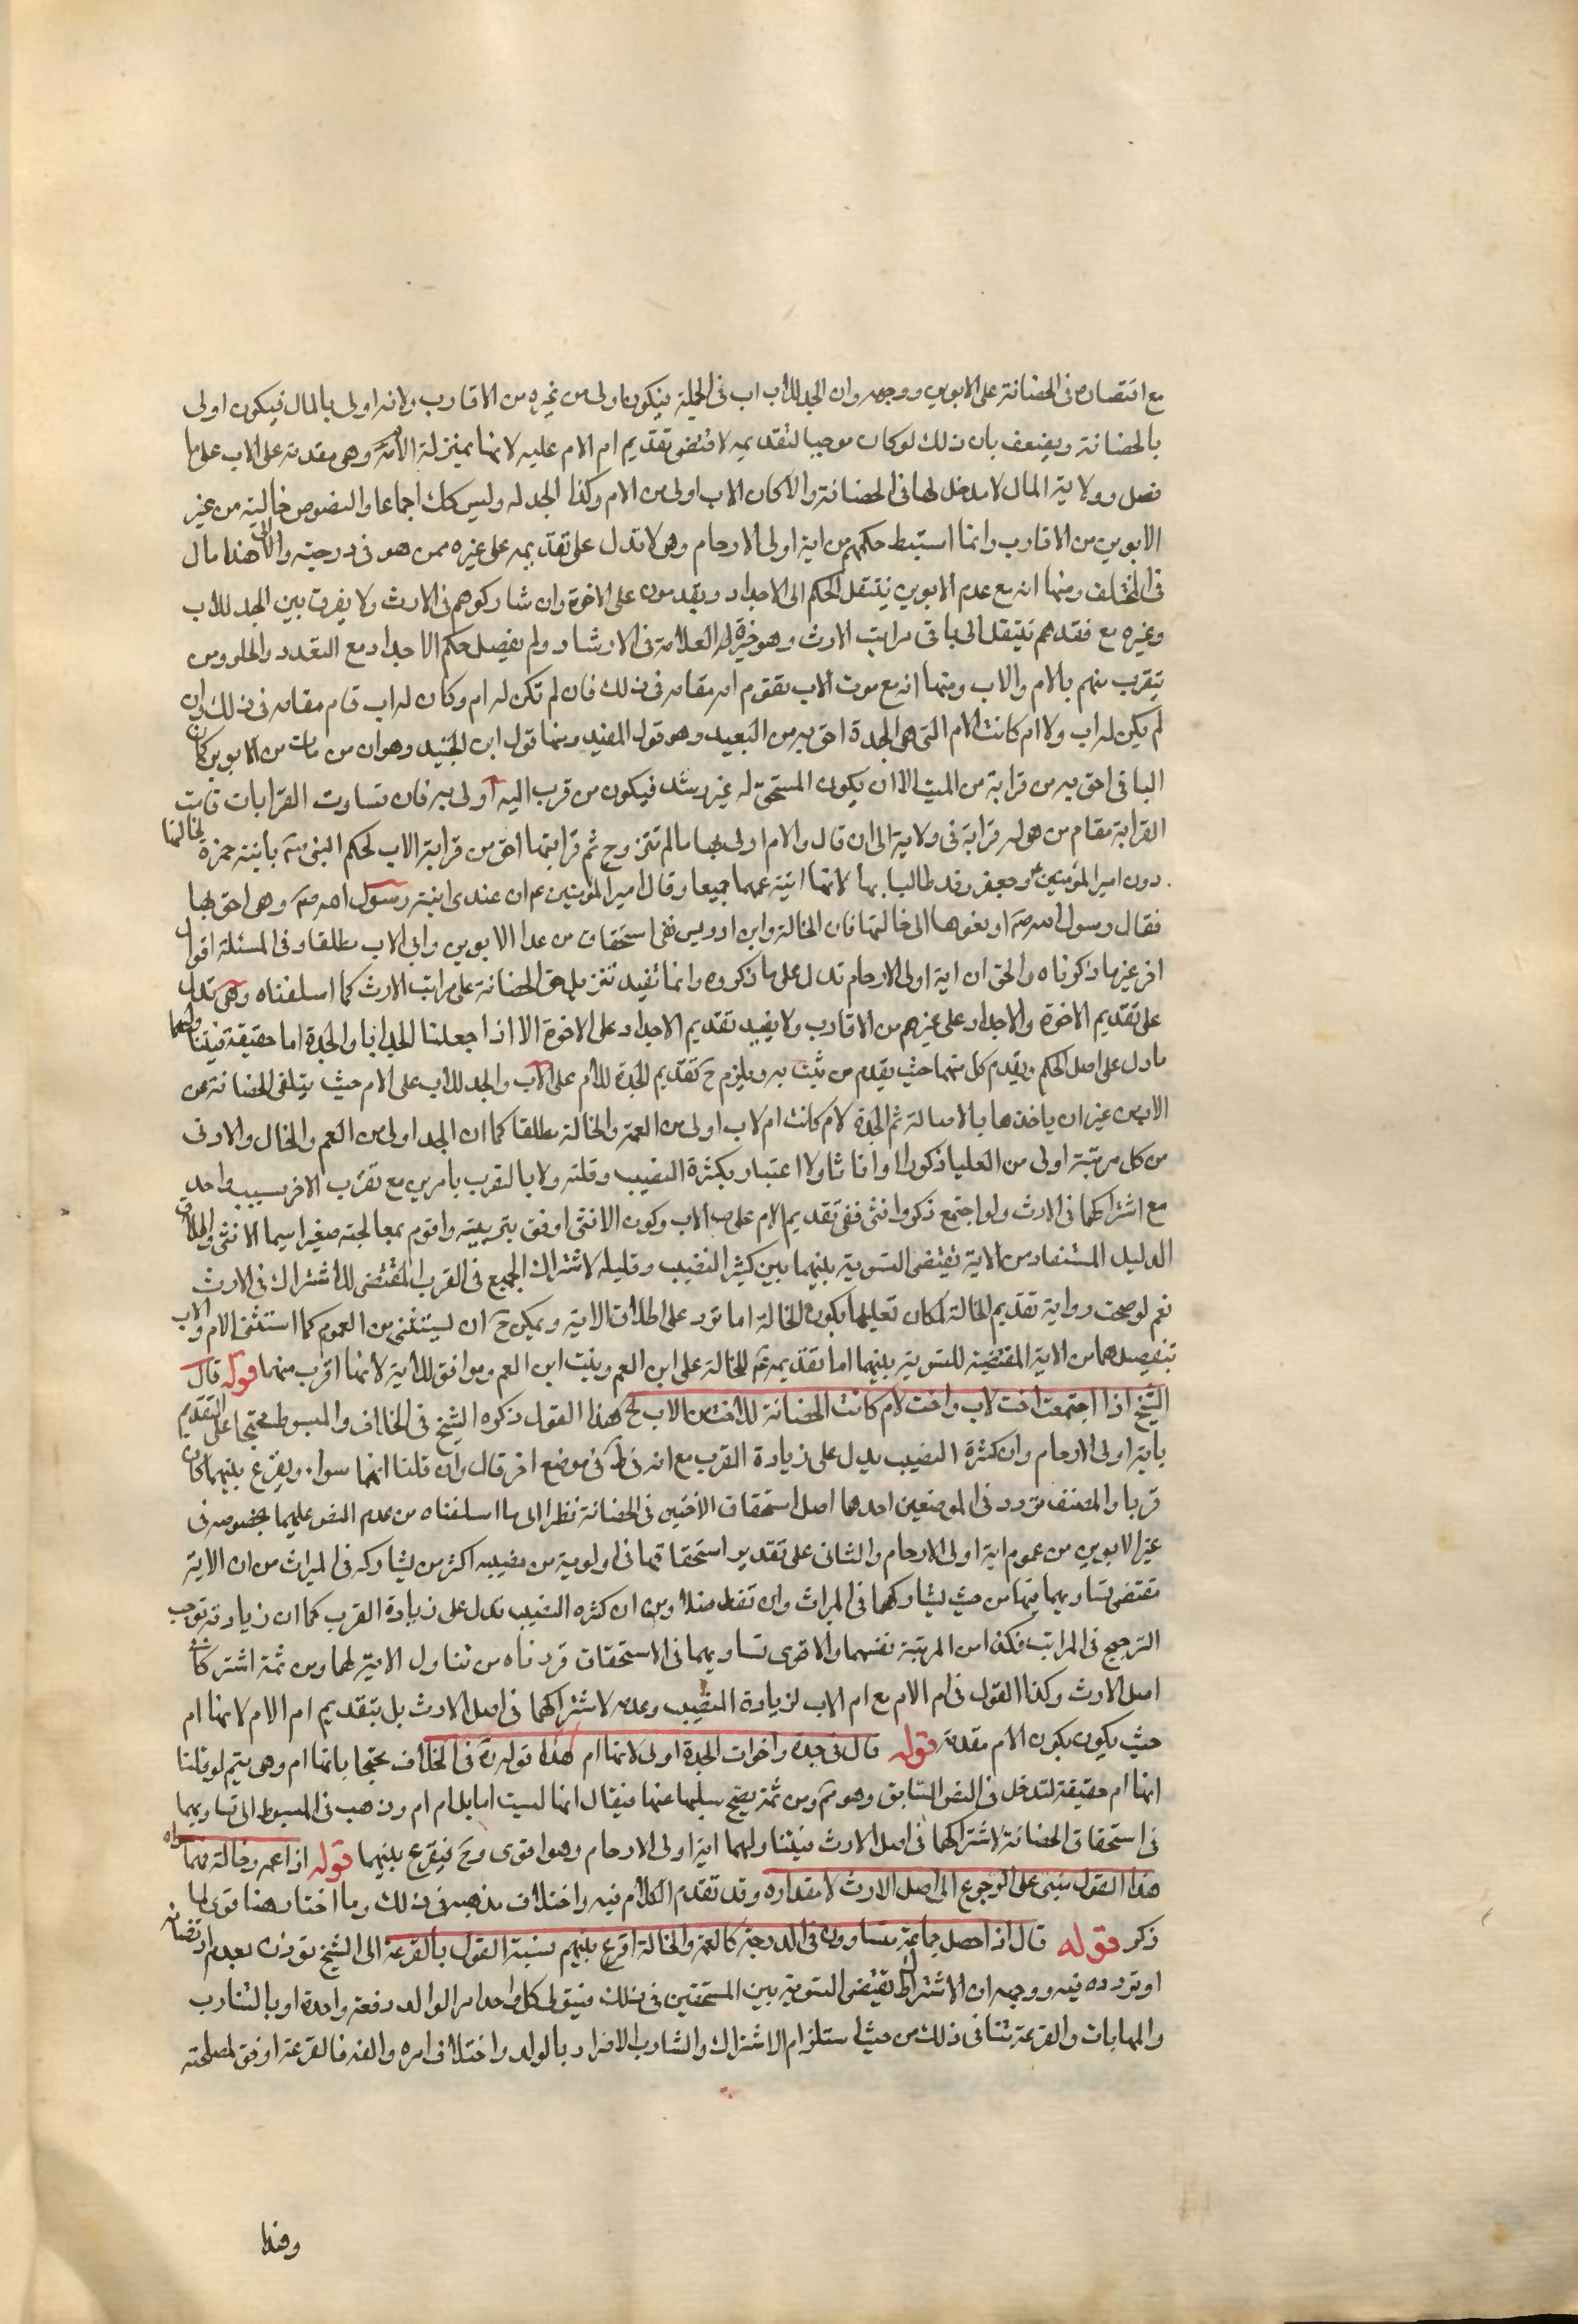 مع اقتصاره فى الحضانة على الابوين ووجهه وان الجد للاب اب فى الجملة فيكون اولى من غيره من الاقارب ولانه اولى بالمال فيكون اولى
بالحضانة ويضعف بان ذلك لو كان موجبا لتقديمه لاقتضى تقديم ام الام عليه لانها بمنزلة الام وهى مقدمة على الاب على ما
فصل وولاية المال لا مدخل لها فى الحضانة والا كان الاب اولى من الام وكذا الجد له وليس كك اجماعا والنصوص خالية من غير
الابوين من الاقارب وانما استنبط حكمهم من اية اولى الارحام وهى لا تدل على تقديمه على غيره ممن هو فى درجته والى هذا مال
فى المختلف ومنها انه مع عدم الابوين ينتقل الحكم الى الاجداد ويقدمون على الاخوة وان شاركوهم فى الارث ولا يفرق بين الجد للاب
وغيره مع فقدهم ينتقل الى باقى مراتب الارث وهو خيرة العلامة فى الارشاد ولم يفصل حكم الاجداد مع التعدد والخلو ومن
يتقرب منهم بالام والاب ومنها انه مع موت الاب يقوم امه مقامه فى ذلك فان لم تكن له ام وكان له اب قام مقامه فى ذلك فان
لم يكن له اب ولا ام كانت الام التى هى الجدة احق به من البعيد وهو قول المفيد ومنها قول ابن الجنيد وهو ان من مات من الابوين كان
الباقى احق به من قرابة من الميت الا ان يكون المستحق له غير رشيد فيكون من قرب اليه اولى به فان تساوت القرابات قامت
القرابة مقام من هو له قرابة فى ولايته الى ان قال والام اولى بها ما لم تتزوج ثم قرابتها احق من قرابة الاب لحكم النبى صم بابنة حمزة لخالتها
دون امير المؤمنين ع وجعفر وقد طالبا بها لانها ابنة عمهما جميعا وقال امير المؤمنين ع ان عندى ابنة رسول الله صم وهى احق بها
فقال رسول الله صم ادفعوها الى خالتها فان الخالة وابن ادريس نفى استحقاق من عدا الابوين وابى الاب مطلقا وفى المسئلة اقوال
اخر غير ما ذكرناه والحق ان اية اولى الارحام تدل على ما ذكروه وانما تفيد تنزيل حق الحضانة على مراتب الارث كما اسلفناه وهى تدل
على تقديم الاخوة والاجداد على غيرهم من الاقارب ولا يفيد تقديم الاجداد على الاخوة الا اذا جعلنا الجد ابا والجدة اما حقيقة فيتناولهما
ما دل على اصل الحكم ويقدم كل منهما حيث يقدم من يثبت به ويلزم ح تقديم الجدة للام على الاب والجد للاب على الام حيث يتلقى الحضانة عن
الاب من غير ان ياخذها بالاصالة ثم الجدة لام كانت ام لاب اولى من العمة والخالة مطلقا كما ان الجد اولى من العم والخال والادنى
من كل مرتبة اولى من العليا ذكورا او اناثا ولا اعتبار بكثرة النصيب وقلته ولا بالتقرب بامرين مع تقرب الاخر بسبب واحد
مع اشتراكهما فى الارث ولو اجتمع ذكر وانثى ففى تقديم الام على الاب وكون الانثى اوفق بتربيته واقوم بمعالجته صغيرا سيما الانثى واطلاق
الدليل المستفاد من الاية تقتضى التسوية بينهما بين كثير النصيب وقليله لاشتراك الجميع فى القرب المقتضى للاشتراك فى الارث
نعم لو صحت رواية تقديم الخالة لمكان تعليلها بكون الخالة اما ترد على اطلاق الاية ويمكن ح ان يستثنى من العموم كما استثنى الام والاب
بتفصيلهما من الاية المقتضية للتسوية بينهما اما تقديمه صم للخالة على ابن العم وبنت ابن العم وموافق للاية لانها اقرب منهما قوله قال
الشيخ اذا اجتمعت اخت لاب واخت لام كانت الحضانة للاخت من الاب الخ هذا القول ذكره الشيخ فى الخلاف والمبسوط محتجا على التقديم
باية اولى الارحام وان كثرة النصيب يدل على زيادة القرب مع انه فى ط فى موضع اخر قال وان قلنا انهما سواء ويقرع بينهما كان
قريبا والمصنف تردد فى الموضعين احدهما اصل استحقاق الاختين فى الحضانة نظرا الى ما اسلفناه من عدم النص عليهما بخصوصه فى
غير الابوين من عموم اية اولى الارحام والثانى على تقدير استحقاقهما فى اولوية من نصيبه اكثر من يشاركه فى الميراث من ان الاية
تقتضى تساويهما فيها من حيث يشاركهما فى الميراث وان تفاضلا ومن ان كثرة النصيب تدل على زيادة القرب كما ان زيادته توجب
الترجيح فى المراتب فكذا من المرتبة نفسها والاقوى تساويهما فى الاستحقاق قررناه من تناول الاية لهما ومن ثمة اشتركا
اصل الارث وكذا القول فى ام الام مع ام الاب لزيادة النصيب وعدمه لاشتراكهما فى اصل الارث بل بتقديم ام الام لانها ام
حيث يكون بكون الام مقدمة قوله قال فى جدة واخوات الجدة اولى لانها ام هذا قوله ره فى الخلاف محتجا بانها ام وهى يتم لو قلنا
انها ام حقيقة لتدخل فى النص السابق وهو مم ومن ثمة يصح سلبها عنها فيقال انها ليست اما بل ام ام وذهب فى المبسوط الى تساويهما
فى استحقاق الحضانة لاشتراكهما فى اصل الارث فيتناولهما اية اولى الارحام وهو اقوى وح فيقرع بينهما قوله اذا عمة وخالة فهما سواء
هذا القول مبنى على الرجوع الى اصل الارث لا مقداره وقد تقدم الكلام فيه واختلاف مذهبه فى ذلك وما اختاره هنا قوى لما
ذكر قوله قال اذا حصل جماعة متساوون فى الدرجة كالعمة والخالة اقرع بينهم نسبة القول بالقرعة الى الشيخ توذن بعدم ارتضائه
او تردده فيه ووجهه ان الاشتراك يقتضى التسوية بين المستحقين فى ذلك فيتولى كل واحد امر الولد دفعة واحدة او بالتناوب
والمهايات والقرعة تنافى ذلك من حيث استلزام الاشتراك والتناوب الاضرار بالولد واختلاف امره والفه فالقرعة اوفق لمصلحته
وهذا